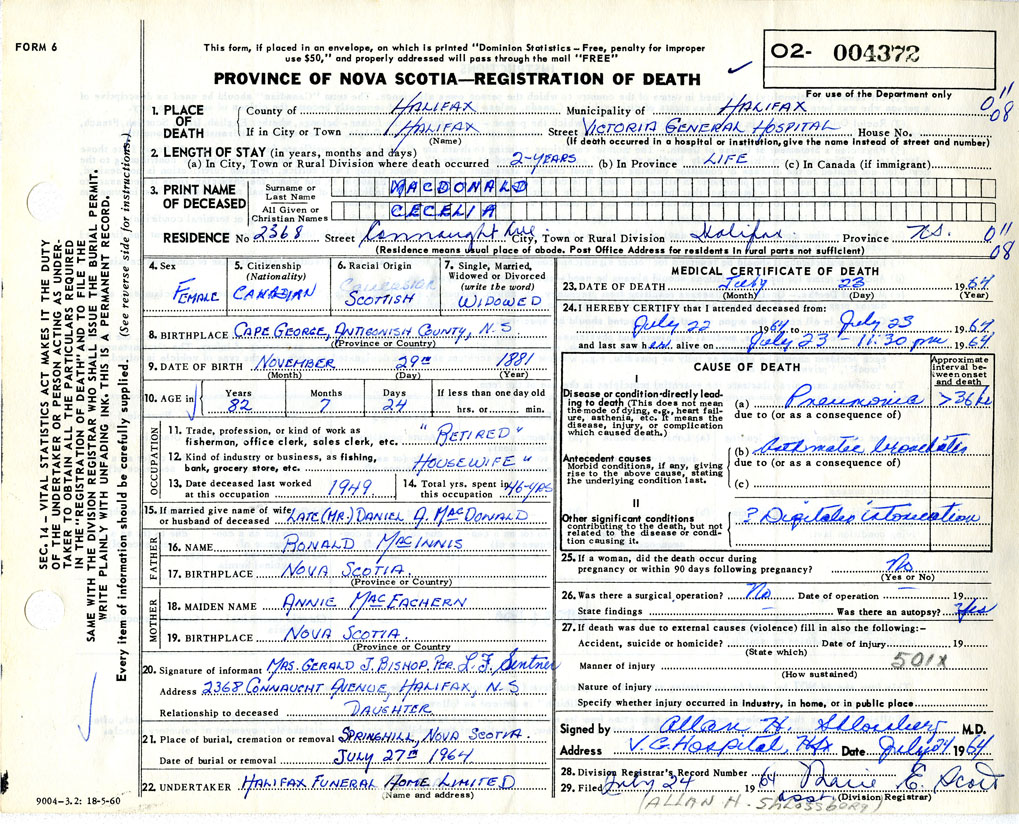 FORM 6
This form, if placed in an envelope, on which is printed "Dominion Statistics – Free, penalty for improper
use $50," and properly addressed will pass through the mail "FREE"
PROVINCE OF NOVA SCOTIA—REGISTRATION OF DEATH
O2- 004372
For use of the Department only
011
08
1. PLACE OF DEATH
County of HALIFAX Municipality of HALIFAX
If in City or Town HALIFAX Street VICTORIA GENERAL HOSPITAL House No.
(Name) (If death occurred in a hospital or institution, give the name instead of street and number)
2. LENGTH OF STAY (in years, months and days)
(a) In City, Town or Rural Division where death occurred 2-YEARS (b) In Province LIFE (c) In Canada (if immigrant)
3. PRINT NAME OF DECEASED
Surname or Last Name MACDONALD
All Given or Christian Names CECELIA
RESIDENCE No 2368 Street Connaught Ave. City, Town or Rural Division Halifax Province N.S. 011
(Residence means usual place of abode. Post Office Address for residents in rural parts not sufficient) 08
4. Sex FEMALE
5. Citizenship (Nationality) CANADIAN
6. Racial Origin SCOTTISH
7. Single, Married, Widowed or Divorced (write the word) WIDOWED
8. BIRTHPLACE CAPE GEORGE, ANTIGONISH COUNTY, N.S
(Province or Country)
9. DATE OF BIRTH NOVEMBER 29TH 1881
(Month) (Day) (Year)
10. AGE in Years 82 Months 7 Days 24 If less than one day old hrs. or min.
OCCUPATION
11. Trade, profession, or kind of work as fisherman, office clerk, sales clerk, etc. "RETIRED"
12. Kind of industry or business, as fishing, bank, grocery store, etc. HOUSEWIFE"
13. Date deceased last worked at this occupation 1949
14. Total yrs. spent in this occupation 46-YRS
15. If married give name of wife or husband of deceased LATE (MR.) DANIEL A. MACDONALD
FATHER
16. NAME RONALD MACINNIS
17. BIRTHPLACE NOVA SCOTIA.
(Province or Country)
MOTHER
18. MAIDEN NAME ANNIE MACEACHERN
19. BIRTHPLACE NOVA SCOTIA.
(Province or Country)
20. Signature of informant MRS. GERALD J. BISHOP. PER. L. F. Sentner
Address 2368 CONNAUGHT AVENUE, HALIFAX, N.S
Relationship to deceased DAUGHTER
21. Place of burial, cremation or removal SPRINGHILL, NOVA SCOTIA.
Date of burial or removal JULY 27TH 1964
22. UNDERTAKER HALIFAX FUNERAL HOME LIMITED
(Name and address)
9004–3.2: 18-5-60
SEC. 14 – VITAL STATISTICS ACT MAKES IT THE DUTY
OF THE UNDERTAKER OR PERSON ACTING AS UNDER-
TAKER TO OBTAIN ALL THE PARTICULARS REQUIRED
IN THE "REGISTRATION OF DEATH" AND TO FILE THE
SAME WITH THE DIVISION REGISTRAR WHO SHALL ISSUE THE BURIAL PERMIT.
WRITE PLAINLY WITH UNFADING INK. THIS IS A PERMANENT RECORD.
Every item of information should be carefully supplied. (See reverse side for instructions.)
MEDICAL CERTIFICATE OF DEATH
23. DATE OF DEATH July 23 1964
(Month) (Day) (Year)
24. I HEREBY CERTIFY that I attended deceased from:
July 22 1964 to July 23 1964
and last saw her alive on July 23 – 11:30 pm 1964
CAUSE OF DEATH
Approximate interval between onset and death
I
Disease or condition directly leading to death (This does not mean the mode of dying, e.g., heart failure, asthenia, etc. It means the disease, injury, or complication which caused death.)
(a) Pneumonia > 36 hr
due to (or as a consequence of)
Antecedent causes
Morbid conditions, if any, giving rise to the above cause, stating the underlying condition last.
(b) asthmatic bronchitis
due to (or as a consequence of)
(c)
II
Other significant conditions
contributing to the death, but not related to the disease or condition causing it.
? Digitalis intoxication
25. If a woman, did the death occur during
pregnancy or within 90 days following pregnancy? No
(Yes or No)
26. Was there a surgical operation? No Date of operation – 19
State findings – Was there an autopsy? Yes
27. If death was due to external causes (violence) fill in also the following:–
Accident, suicide or homicide? Date of injury 19
(State which)
501X
Manner of injury
(How sustained)
Nature of injury
Specify whether injury occurred in industry, in home, or in public place
Signed by Allan H. Shlossberg M.D.
Address V.G. Hospital, Hfx Date July 24 1964
28. Division Registrar's Record Number
29. Filed July 24 1964 Marie E. Scott
asst (Division Registrar)
(ALLAN H. SHLOSSBERG)